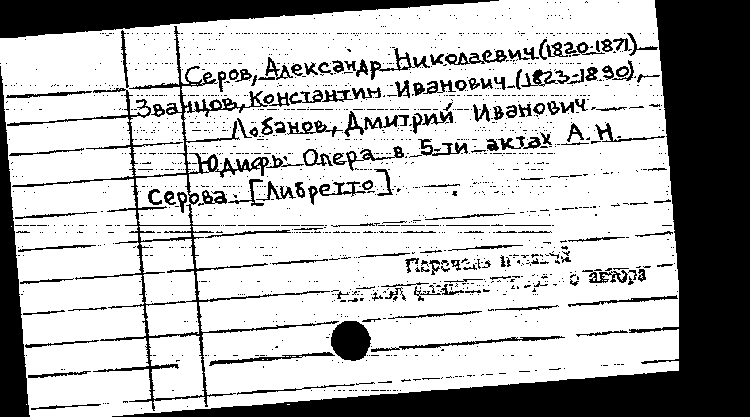 Серов, Александр Николаевич (1820-1871)
Званцов, Константин Иванович (1823-1890),
Лобанов, Дмитрий Иванович.
Юдифь: Опера в 5-ти актах А. Н.
Серова. [Либретто].
Перечень изданий
см. под фамилией о автора